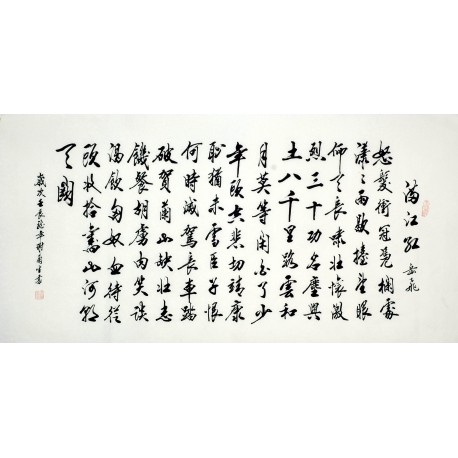 滿江紅 岳飛
怒髮衝冠憑欄處
瀟々雨歇擡望眼
仰天長嘯壯懷激
烈三十功名塵與
土八千里路雲和
月莫等閑白了少
年頭空悲切靖康
恥猶未雪臣子恨
何時滅駕長車踏
破賀蘭山缺壯志
饑餐胡虜肉笑談
渴飲匈奴血待從
頭收拾舊山河朝
天闕
歲次壬辰龍年書